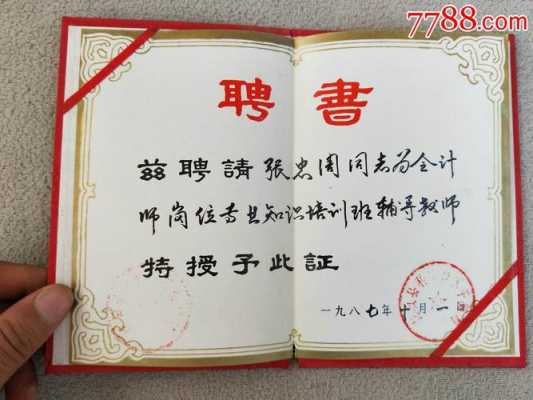 7788.com
聘書
兹聘請张忠周同志为会计
师岗位专业知识培训班辅导教师
特授予此証
一九八七年十月一日